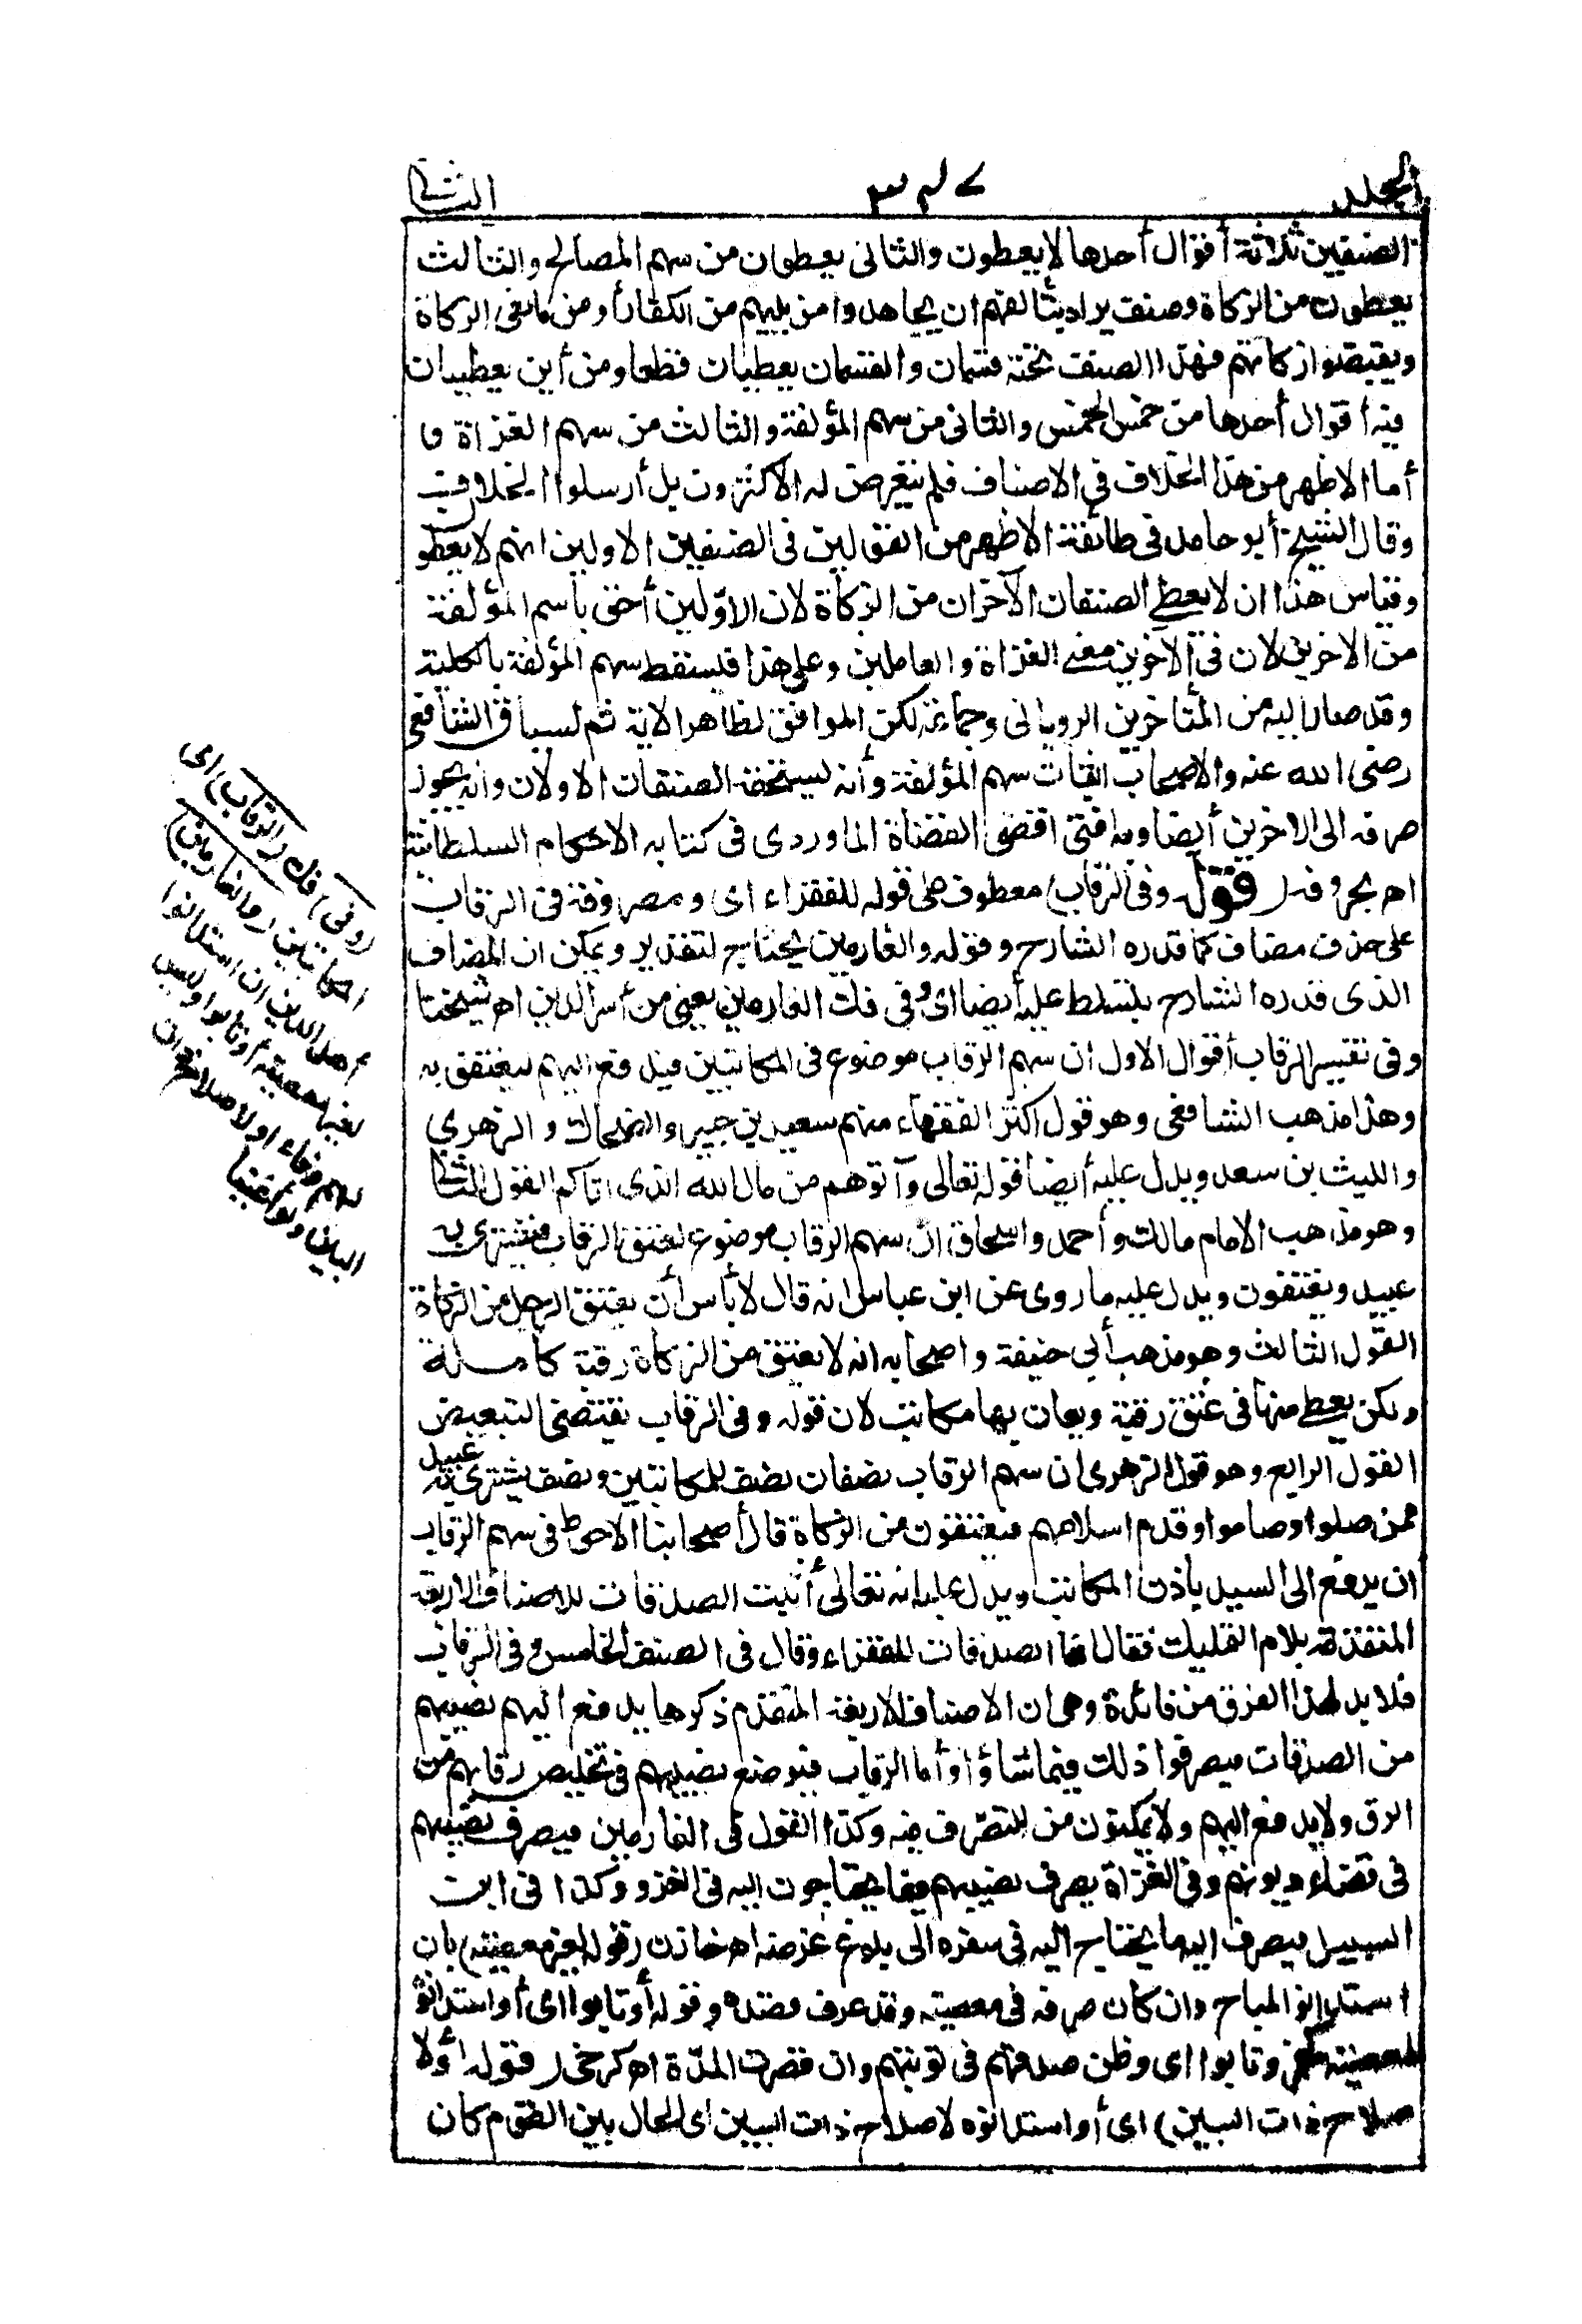 المجلد ٣٤٧ الثاني
الصنفين ثلاثة أقوال أحدها لا يعطون والثاني يعطون من سهم المصالح والثالث
يعطون من الزكاة وصنف يراد بتألفهم ان يجاهدوا من يليهم من الكفار أو من مانعى الزكاة
ويقبضوا زكاتهم فهذا الصنف تحته قسمان والقسمان يعطيان قطعا ومن أين يعطيان
فيه أقوال أحدها من خمس الخمس والثاني من سهم المؤلفة والثالث من سهم الغزاة و
أما الاظهر من هذا الخلاف في الاصناف فلم يتعرض له الاكثرون بل أرسلوا الخلاف
وقال الشيخ أبو حامد في طائفة الاظهر من القولين في الصنفين الاولين انهم لا يعطو
وقياس هذا ان لا يعطى الصنفان الآخران من الزكاة لان الاوّلين أحق باسم المؤلفة
من الآخرين لان في الآخرين معنى الغزاة والعاملين وعلى هذا فيسقط سهم المؤلفة بالكلية
وقد صار اليه من المتأخرين الرويانى وجماعة لكن الموافق لظاهر الاية ثم لسياق الشافعى
رضى الله عنه والاصحاب اثبات سهم المؤلفة وأنه يستحقه الصنفان الاولان وانه يجوز
صرفه الى الاخرين أيضا وبه افتى اقضى القضاة الماوردى في كتابه الاحكام السلطانية
اهـ بحروفه (قوله وفي الرقاب) معطوف على قوله للفقراء اى ومصروفة فى الرقاب
على حذف مضاف كما قدره الشارح وقوله والغارمين يحتاج لتقدير ويمكن ان المضاف
الذى قدره الشارح يتسلط عليه أيضا اى وفى فك الغارمين يعنى من أسر الدين اهـ شيخنا
وفى تفسير الرقاب أقوال الاول ان سهم الرقاب موضوع فى المكاتبين فيدفع اليهم ليعتقوا به
وهذا مذهب الشافعى وهو قول اكثر الفقهاء منهم سعيد بن جبير والضحاك والزهري
والليث بن سعد ويدل عليه أيضا قوله تعالى وآتوهم من مال الله الذى اتاكم القول الثانى
وهو مذهب الامام مالك وأحمد واسحاق ان سهم الرقاب موضوع لعتق الرقاب فيشترى به
عبيد ويعتقون ويدل عليه ما روى عن ابن عباس انه قال لا بأس أن يعتق الرجل من الزكاة
القول الثالث وهو مذهب أبي حنيفة واصحابه انه لا يعتق من الزكاة رقبة كاملة
ولكن يعطى منها فى عتق رقبة ويعان بها مكاتب لان قوله وفى الرقاب يقتضى التبعيض
القول الرابع وهو قول الزهرى ان سهم الرقاب نصفان نصف للمكاتبين ونصف يشترى به عبيد
ممن صلوا وصاموا وقدم اسلامهم فيعتقون من الزكاة قال أصحابنا الاحوط فى سهم الرقاب
ان يدفع الى السيد باذن المكاتب ويدل عليه انه تعالى أثبت الصدقات للاصناف الاربعة
المتقدمة بلام التمليك فقال انما الصدقات للفقراء وقال فى الصنف الخامس وفى الرقاب
فلا بد لهذا الفرق من فائدة وهى ان الاصناف الاربعة المتقدم ذكرها يدفع اليهم نصيبهم
من الصدقات فيصرفوا ذلك فيما شاؤا وأما الرقاب فيوضع نصيبهم فى تخليص رقابهم من
الرق ولا يدفع اليهم ولا يمكنون من التصرف فيه وكذا القول فى الغارمين فيصرف نصيبهم
فى قضاء ديونهم وفى الغزاة يصرف نصيبهم فيما يحتاجون اليه فى الغزو وكذا فى ابن
السبيل فيصرف اليه ما يحتاج اليه فى سفره الى بلوغ غرضه اهـ خازن (قوله لغير معصية) بان
استدانوا لمباح وان كان صرفه فى معصية وقد عرف قصده وقوله أو تابوا اى أو استدانوا
لمعصية وتابوا اى وظن صدقهم فى توبتهم وان قصرت المدّة اهـ كرخى (قوله أو لا
صلاح ذات البين) اى أو استدانوه لاصلاح ذات البين اى الحال بين القوم كان
(وفى) فك (الرقاب) اى
المكاتبين (والغارمين)
أهل الدين ان استدانوا
لغير معصية أو تابوا وليس
لهم وفاء او لاصلاح ذات
البين ولو أغنيا